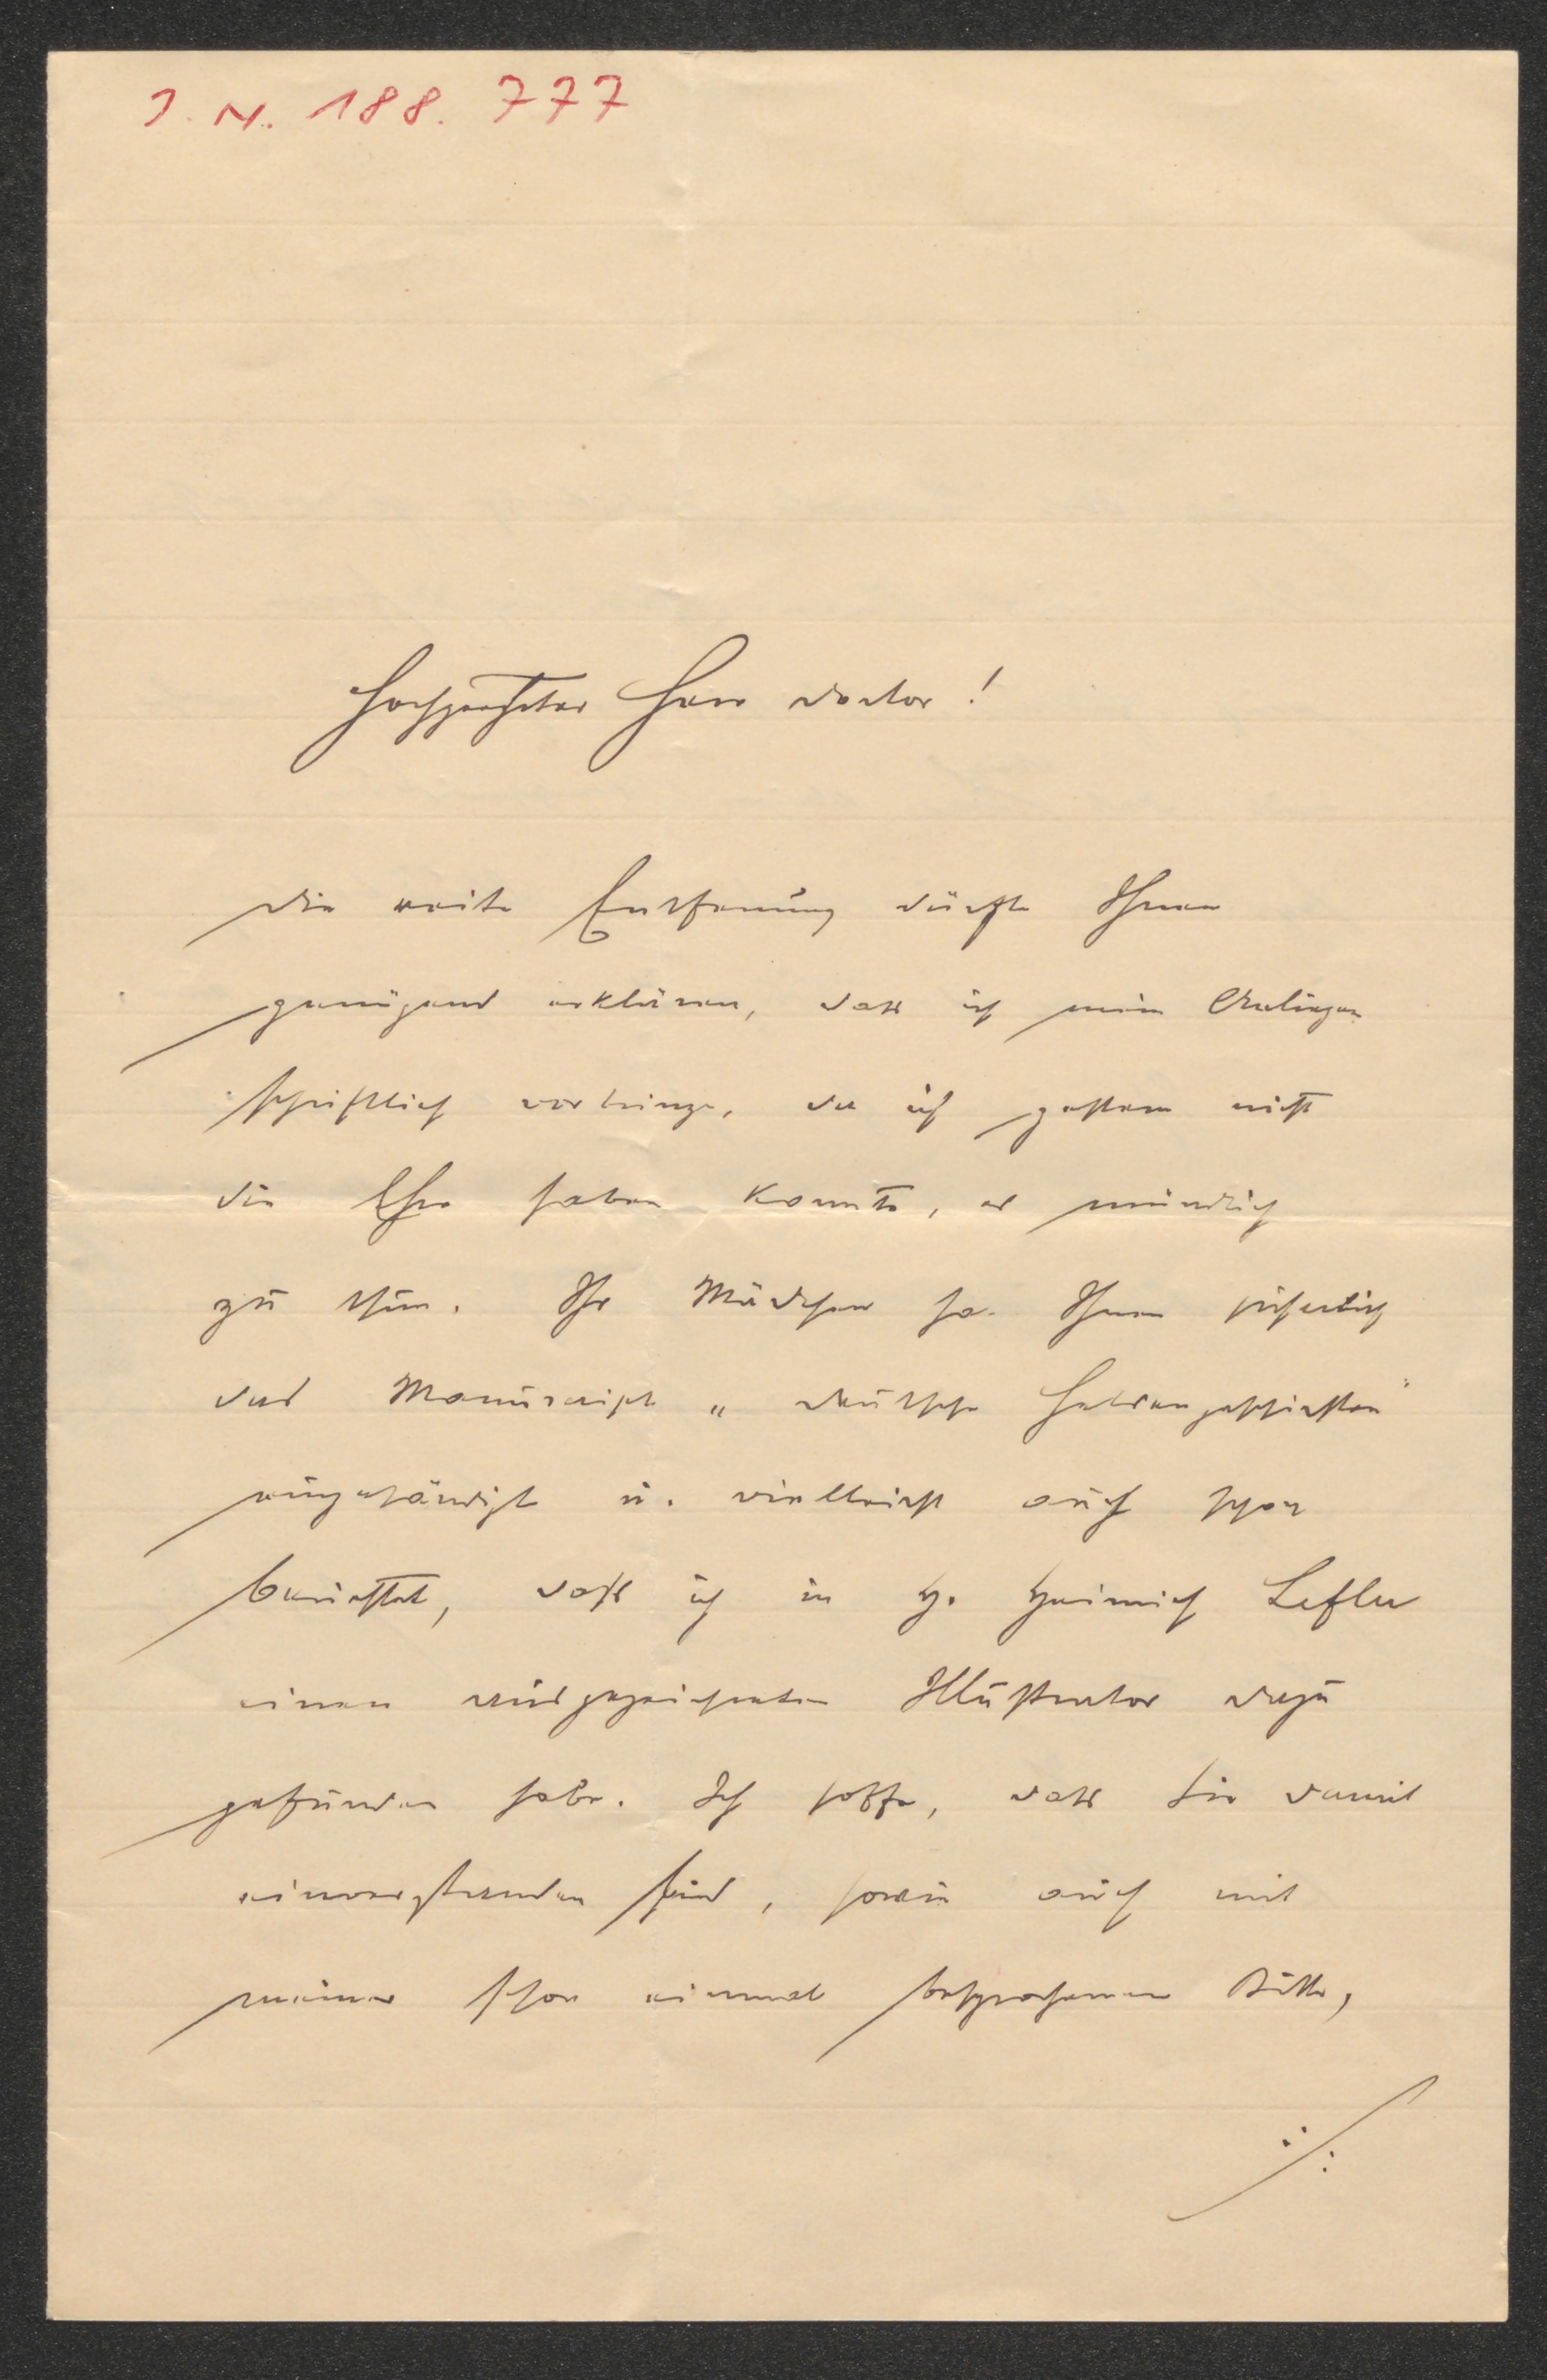 J. N. 188.777
Hochgeehrter Herr Doctor!
Die weite Entfernung dürfte Ihnen
genügend erklären, dass ich mein Anliegen
schriftlich vorbringe, da ich gestern nicht
die Ehre haben konnte, es mündlich
zu thun. Ihr Mädchen ha Ihnen sicherlich
das Manuscript „Deutsche Heldengeschichten"
eingehändigt u. vielleicht auch schon
berichtet, dass ich in H. Heinrich Lefler
einen ausgezeichneten Illustrator dazu
gefunden habe. Ich hoffe, dass Sie damit
einverstanden sind, sowie auch mit
meiner schon einmal besprochenen Bitte,
./.